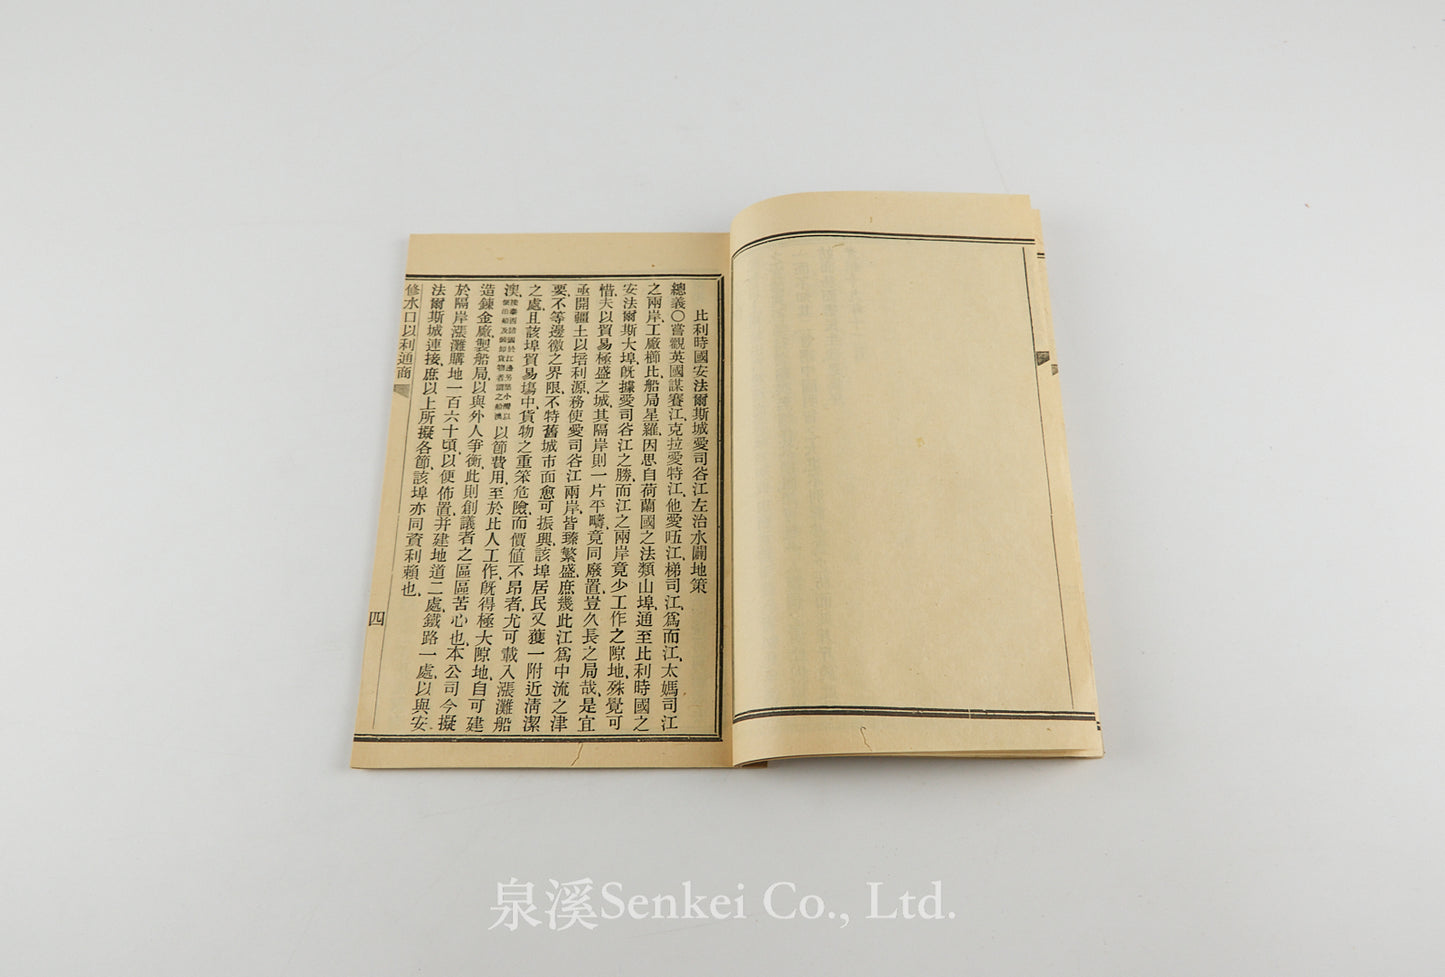 比利時國安法爾斯城愛司谷江左治水闢地策
總義〇嘗觀英國謀賽江、克拉愛特江、他愛吪江、梯司江、爲而江、太媽司江
之兩岸、工廠櫛比、船局星羅、因思自荷蘭國之法類山埠、通至比利時國之
安法爾斯大埠、旣據愛司谷江之勝、而江之兩岸、竟少工作之隙地、殊覺可
惜、夫以貿易極盛之城、其隔岸則一片平疇、竟同廢置、豈久長之局哉、是宜
亟開疆土、以培利源、務使愛司谷江兩岸、皆臻繁盛、庶幾此江爲中流之津
要、不等邊徼之界限、不特舊城市面、愈可振興、該埠居民、又獲一附近淸潔
之處、且該埠貿易場中、貨物之重笨危險、而價値不昂者、尤可載入漲灘船
澳、按泰西諸國於江邊另築小灣以便泊船及裝卸貨物者謂之船澳以節費用、至於比人工作、旣得極大隙地、自可建
造鍊金廠、製船局、以與外人爭衡、此則創議者之區區苦心也、本公司今擬
於隔岸漲灘、購地一百六十頃、以便佈置、并建地道二處、鐵路一處、以與安
法爾斯城連接、庶以上所擬各節、該埠亦同資利賴也、
修水口以利通商
四
泉溪Senkei Co., Ltd.